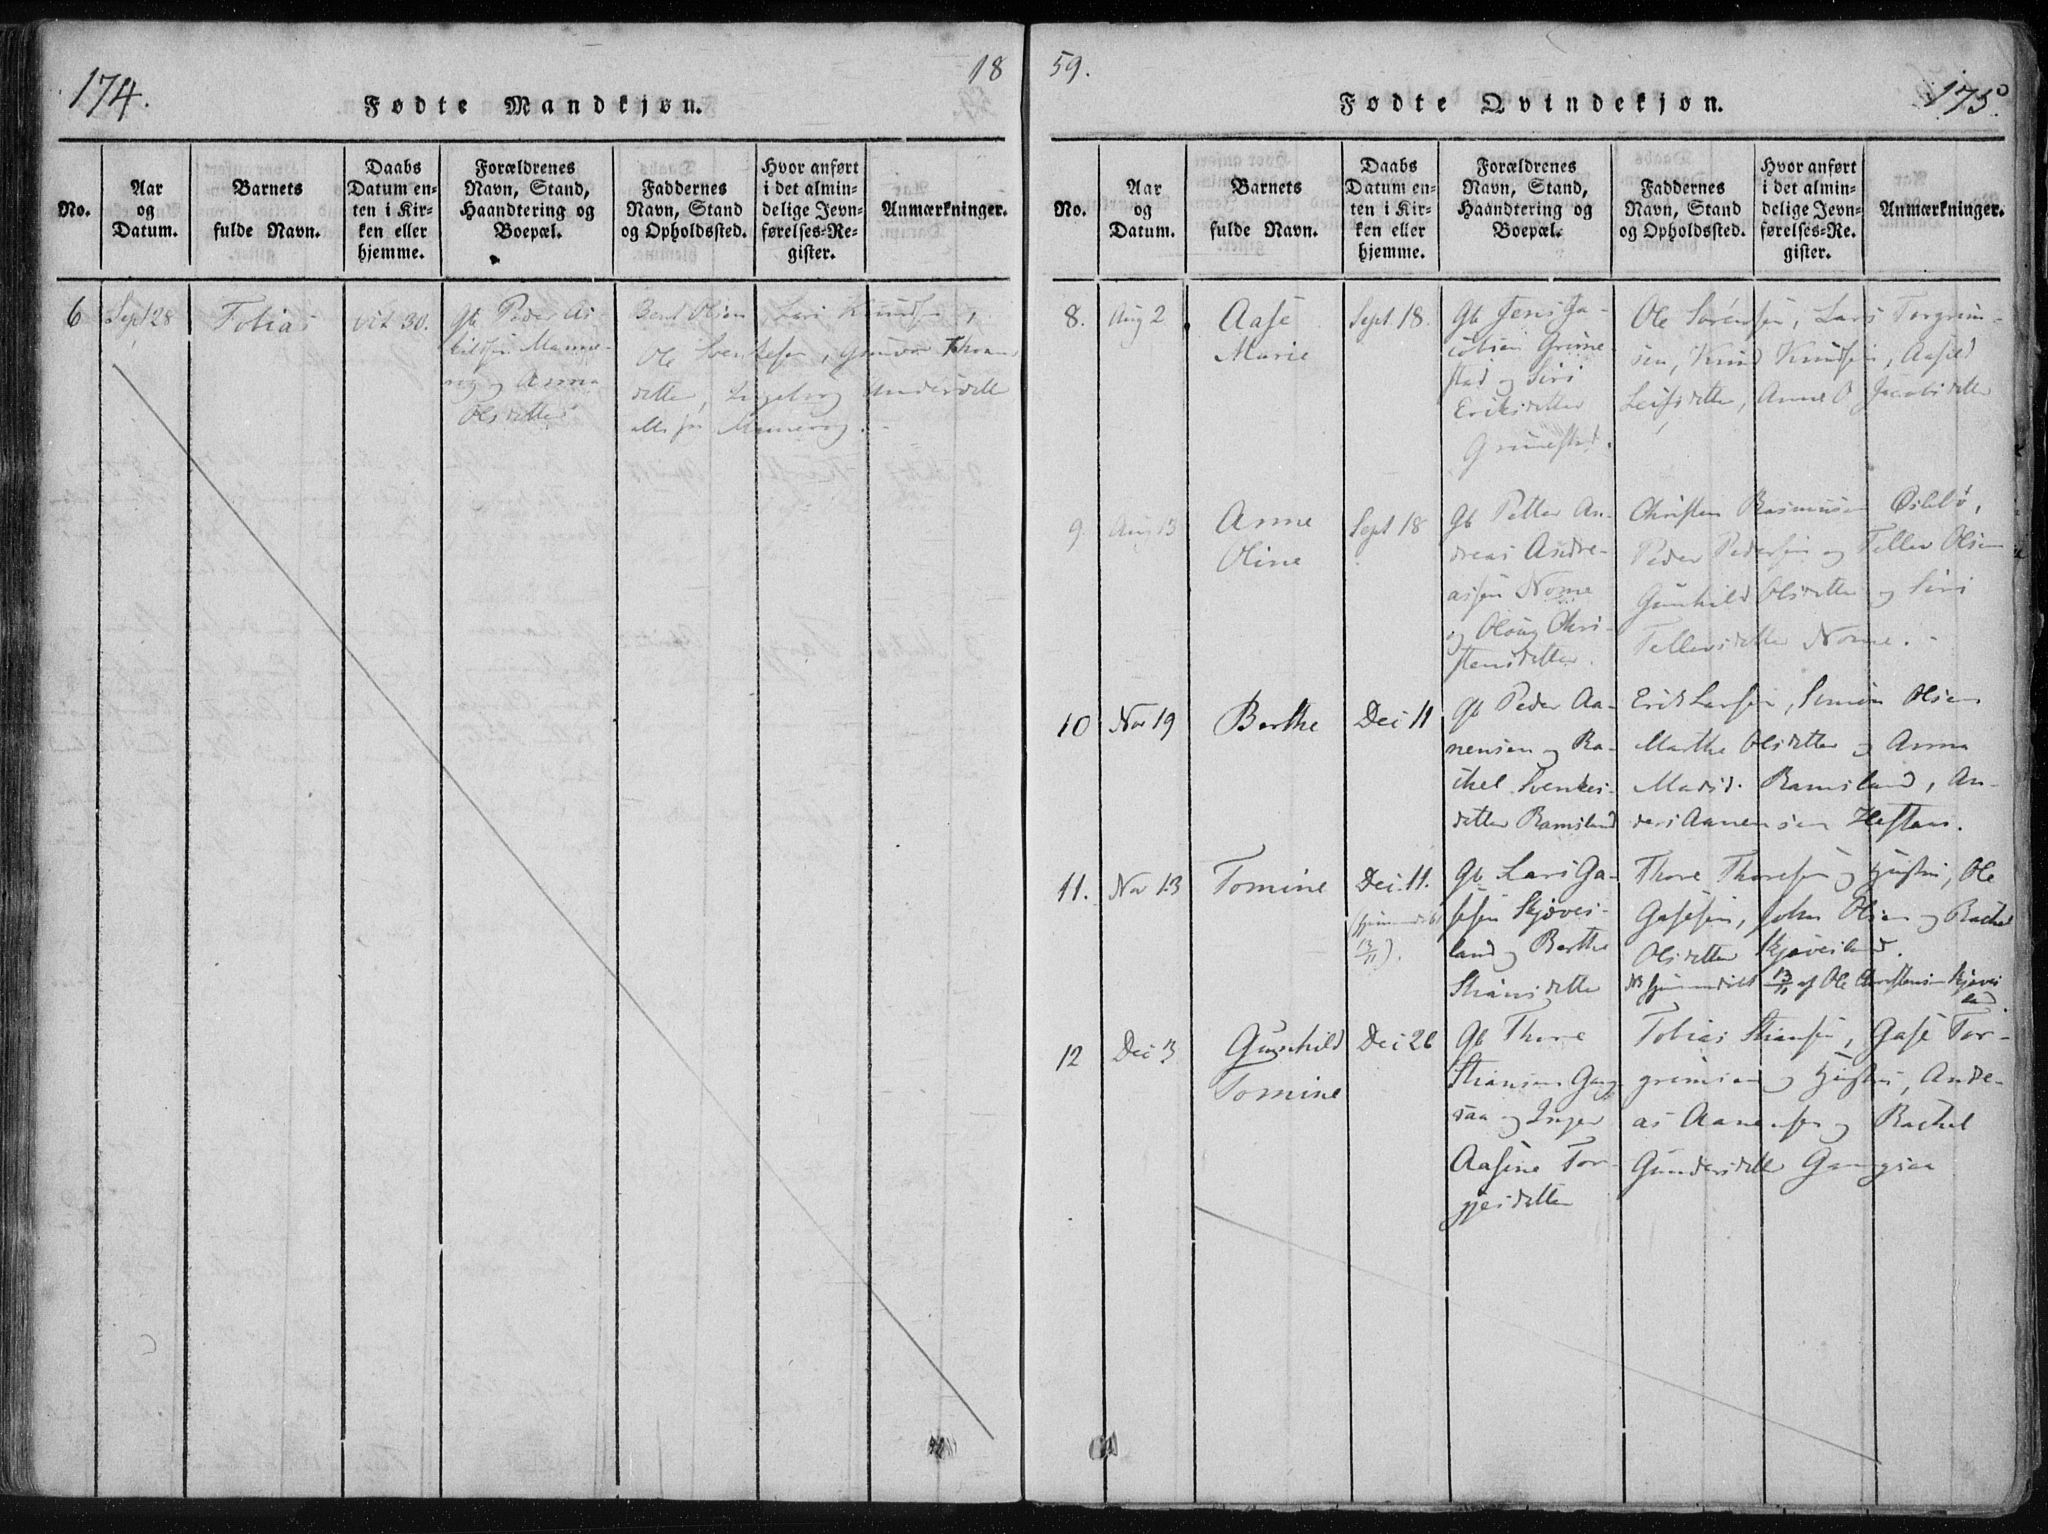 174.
18
Fødte Mandkjøn.
No.
Aar
og
Datum.
Barnets
fulde Navn.
Daabs
Datum en-
ten i Kir-
ken eller
hjemme.
Forældrenes
Navn, Stand,
Haandtering og
Boepæl.
Faddernes
Navn, Stand
og Opholdssted.
Hvor anført
i det almin-
delige Jevn-
førelses-Re-
gister.
Anmærkninger.
6
Sept 28
Tobias
oct 30.
Gb Peder
og Anna
Olsdetter
Bent Olsen Lars Knudsen,
Ole Svenkesen, Gunvor
detter, Ingeborg Andersdett
alle fra
59.
175
Fødte Qvindekjøn.
No.
Aar
og
Datum.
Barnets
fulde Navn.
Daabs
Datum en-
ten i Kir-
ken eller
hjemme.
Forældrenes
Navn, Stand,
Haandtering og
Boepæl.
Faddernes
Navn, Stand
og Opholdssted.
Hvor anført
i det almin-
delige Jevn-
førelses-Re-
gister.
Anmærkninger.
8.
Aug 2
Aase
Marie
Sept 18.
Gb Jens Ja-
cobsen Grime-
stad og Siri
Eriksdetter
Grimestad.
Ole Sørensen, Lars Torgrim-
sen, Knud Knudsen, Aasild
Leifsdetter, Anne O Jacobsdetter
9.
Aug 13
Anne
Oline
Sept 18
Gb Petter An-
dreas Andre-
assen Nome
og Oloug Chri-
stensdetter.
Christen Rasmussen Øslebø,
Peder Pedersen og Tellev Olsen
Gunhild Olsdetter og Siri
Tellevsdetter Nome.
10
Nov 19
Berthe
Dec 11
Gb Peder Aa-
nensen og Ra-
chel Svenkes-
detter Ramsland
Erik Larsen, Simon Olsen
Marthe Olsdetter og Anna
Madsd. Ramsland, An-
ders Aanensen
11.
Nov 13
Tomine
Dec. 11.
(hjemmedøbt
13/11).
Gb Lars Ga-
sesen Skjeves-
land og Berthe
Stiansdetter
Thore Thoresen og Hustru, Ole
Gasesen, John Olsen og Rachel
Olsdetter Skjevesland.
NB hjemmedøbt 13/11 af Ole Christensen Skjeves
land
12
Dec 3
Gunhild
Tomine
Dec 26
Gb Thore
Stiansen Gang
saa og Inger
Aasine Tor-
gjesdetter
Tobias Stiansen, Gase Tor-
gremsen og Hustru, Andre-
as Aanensen og Rachel
Gundersdetter Gangsaa